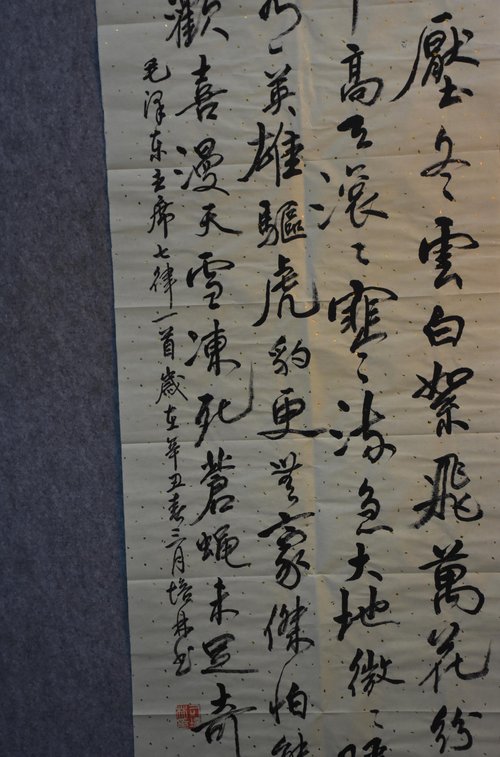 壓冬雲白絮飛萬花紛
高天滚〻寒流急大地微〻暖
英雄驅虎豹更無豪傑怕熊
歡喜漫天雪凍死蒼蠅未足奇
毛泽东主席七律一首歲在辛丑春三月培林书